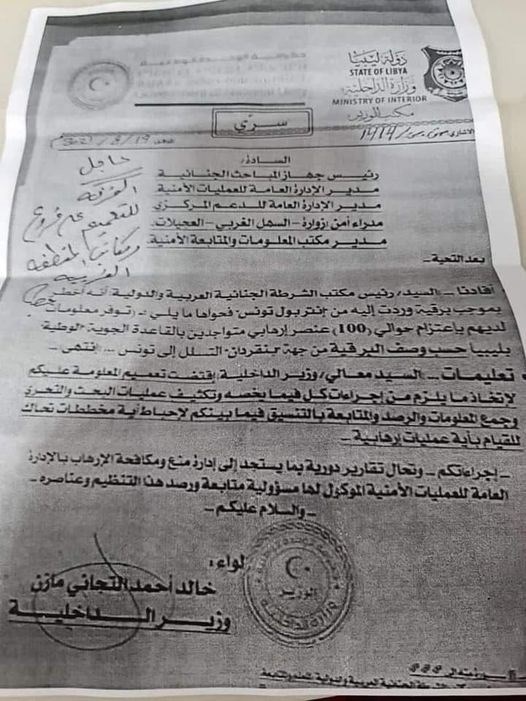 دولة ليبيا
STATE OF LIBYA
وزارة الداخلية
MINISTRY OF INTERIOR
مكتب الوزير
سري
عاجل
السادة/
رئيس جهاز المباحث الجنائية
مدير الإدارة العامة للعمليات الأمنية
مدير الإدارة العامة للدعم المركزي
مدراء أمن (زوارة - السهل الغربي - العجيلات)
مدير مكتب المعلومات والمتابعة الأمنية.
بعد التحية..
أفادنا - السيد/ رئيس مكتب الشرطة الجنائية العربية والدولية أنه أخطر
بموجب برقية وردت إليه من إنتربول تونس، فحواها ما يلي :- (توفر معلومات
لديهم بإعتزام حوالي (100) عنصر إرهابي متواجدين بالقاعدة الجوية الوطية
بليبيا حسب وصف البرقية من جهة بنقردان، التسلل إلى تونس ... إنتهى -
تعليمات ... السيد معالي/ وزير الداخلية/ إقتضت تعميم المعلومة عليكم
لإتخاذ ما يلزم من إجراءات كل فيما يخصه وتكثيف عمليات البحث والتحري
وجمع المعلومات والرصد والمتابعة بالتنسيق فيما بينكم لإحباط أية مخططات تحاك
للقيام بأية عمليات إرهابية -
إجراءاتكم .. وتحال تقارير دورية بما يستجد إلى إدارة منع ومكافحة الإرهاب بالإدارة
العامة للعمليات الأمنية الموكول لها مسؤولية متابعة ورصد هذا التنظيم وعناصره -
- والسلام عليكم -
لواء:
خالد أحمد التجاني مازن
وزير الداخلية
الوزير